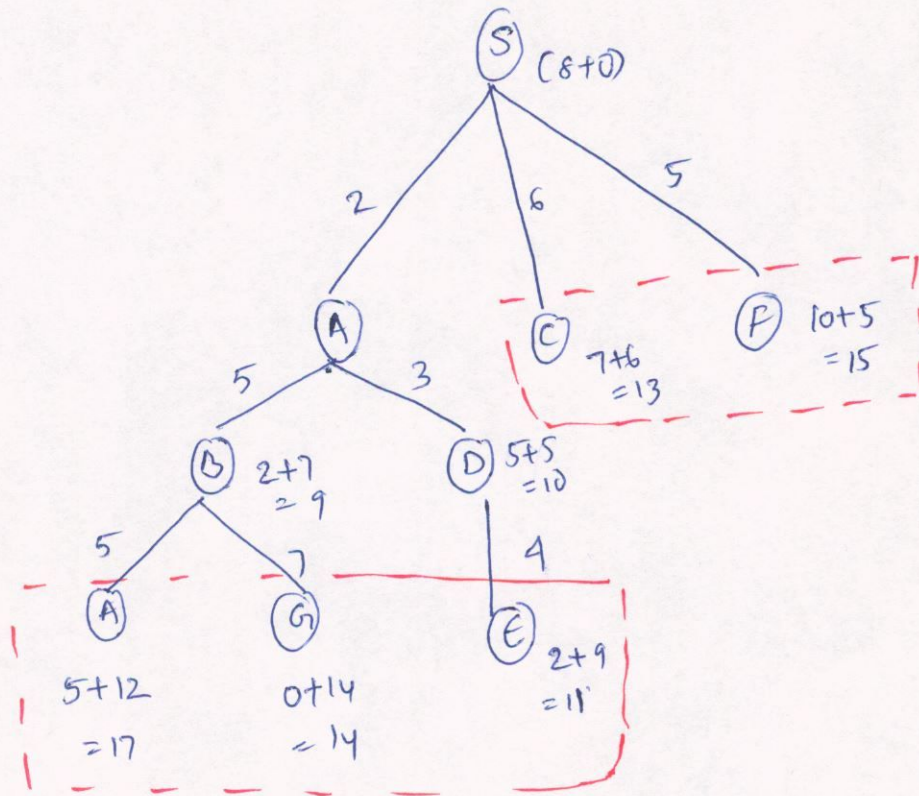 S
(8+0)
2
6
5
A
C
F
10+5
=15
7+6
=13
5
3
B
2+7
= 9
D
5+5
=10
5
7
4
A
G
E
2+9
=11
5+12
=17
0+14
= 14